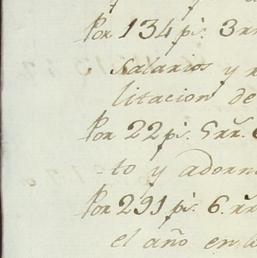 Por 134 ps. 3 rr
Salarios y
litacion de
Por 22 ps. 5 rr.
to y adorn
Por 291 ps. 6. rr
el año en